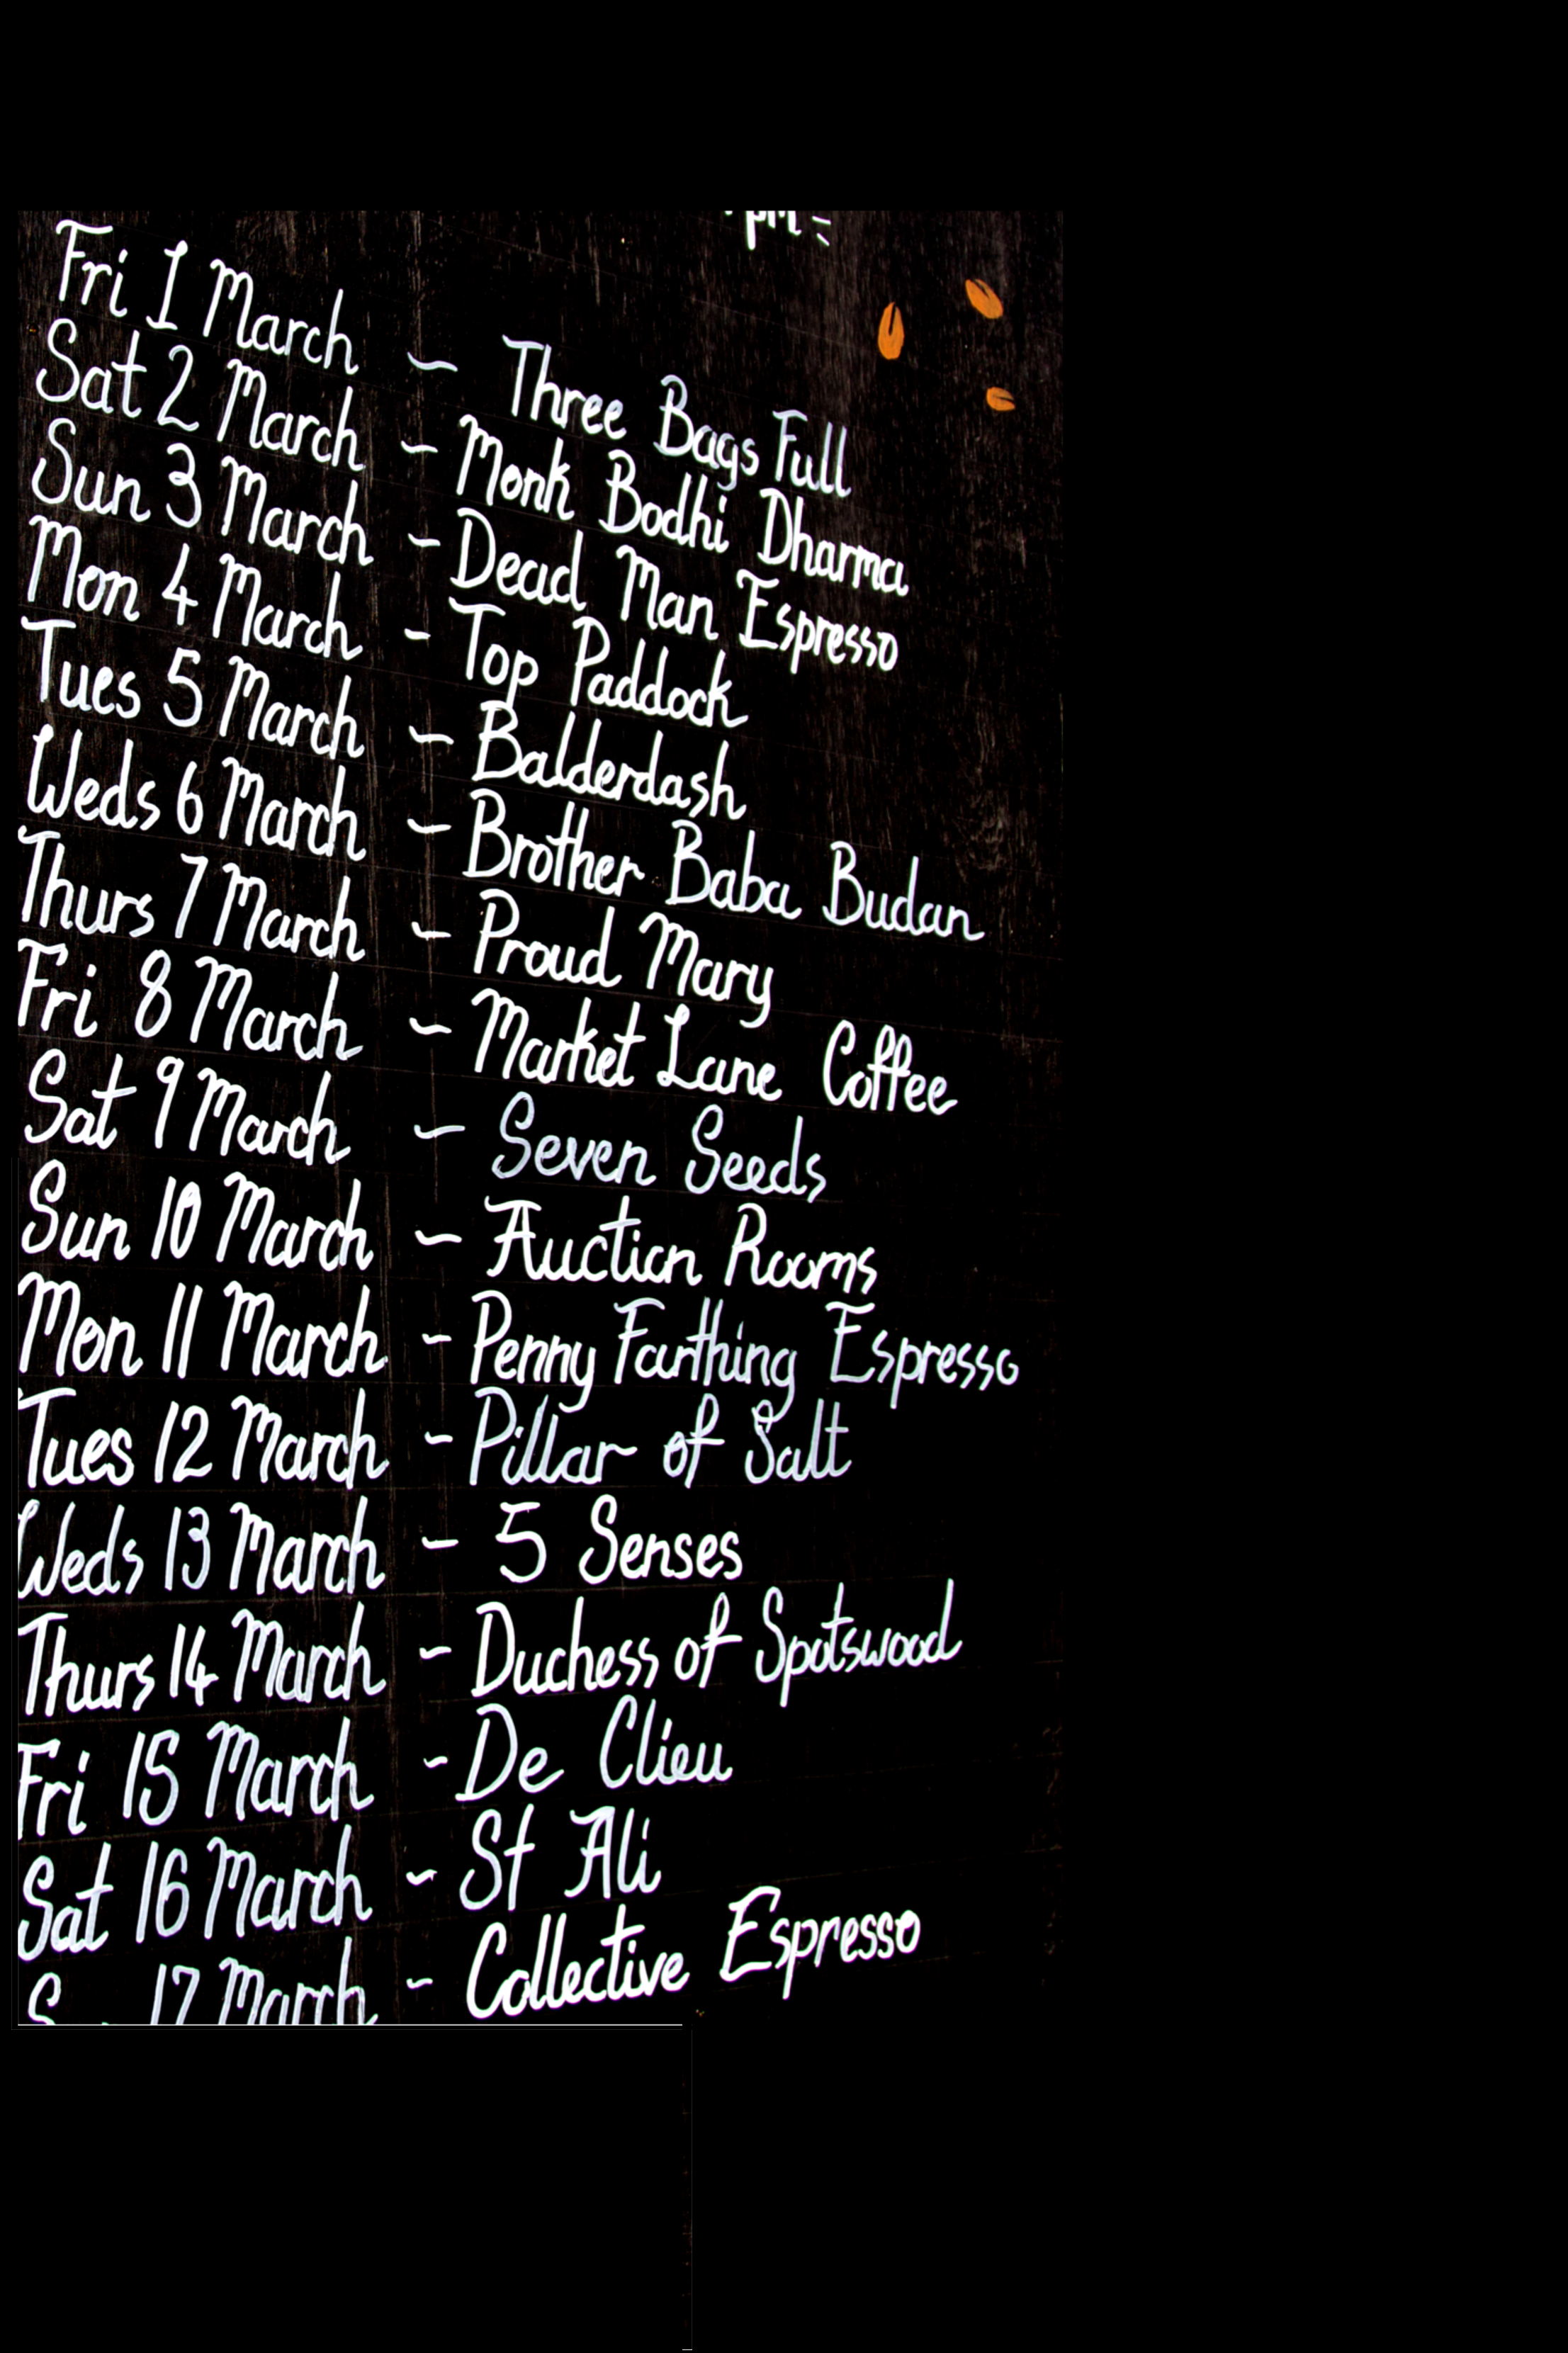 pm
Fri 1 March - Three Bags Full
Sat 2 March - Monk Bodhi Dharma
Sun 3 March - Dead Man Espresso
Mon 4 March - Top Paddock
Tues 5 March - Balderdash
Weds 6 March - Brother Baba Budan
Thurs 7 March - Proud Mary
Fri 8 March - Market Lane Coffee
Sat 9 March - Seven Seeds
Sun 10 March - Auction Rooms
Mon 11 March - Penny Farthing Espresso
Tues 12 March - Pillar of Salt
Weds 13 March - 5 Senses
Thurs 14 March - Duchess of Spotswood
Fri 15 March - De Clieu
Sat 16 March - St Ali
17 March - Collective Espresso